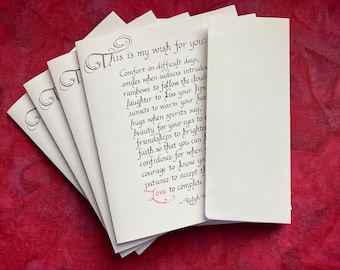 This is my wish for you:
Comfort on difficult days,
smiles when sadness intrudes
rainbows to follow the clouds
laughter to kiss your lips
sunsets to warm your hear
hugs when spirits sag,
beauty for your eyes to
friendships to brighten
faith so that you can
confidence for when
courage to know you
patience to accept the
Love to complete